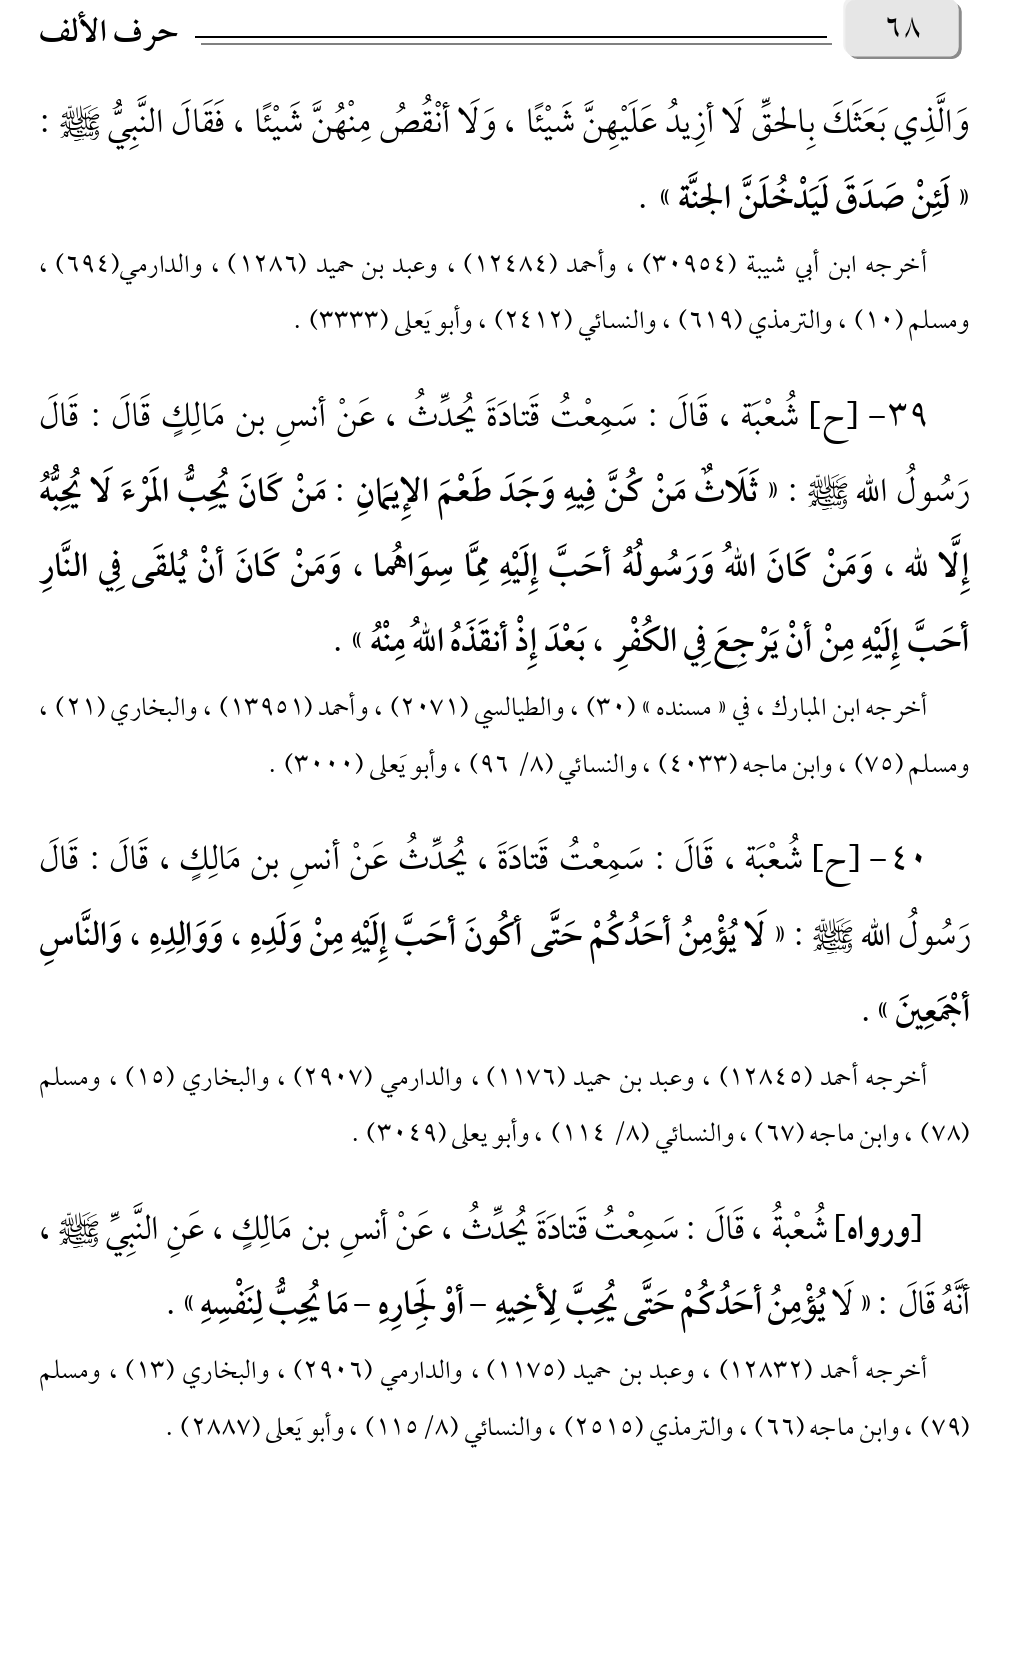 ٦٨ حرف الألف
وَالَّذِي بَعَثَكَ بِالحقِّ لَا أزِيدُ عَلَيْهِنَّ شَيْئًا ، وَلَا أنْقُصُ مِنْهُنَّ شَيْئًا ، فَقَالَ النَّبِيُّ ﷺ :
« لَئِنْ صَدَقَ لَيَدْخُلَنَّ الجنَّة » .
أخرجه ابن أبي شيبة (٣٠٩٥٤) ، وأحمد (١٢٤٨٤) ، وعبد بن حميد (١٢٨٦) ، والدارمي(٦٩٤) ،
ومسلم (١٠) ، والترمذي (٦١٩) ، والنسائي (٢٤١٢) ، وأبو يَعلى (٣٣٣٣) .
٣٩- [ح] شُعْبَة ، قَالَ : سَمِعْتُ قَتادَةَ يُحدِّثُ ، عَنْ أنسِ بن مَالِكٍ قَالَ : قَالَ
رَسُولُ الله ﷺ : « ثَلَاثٌ مَنْ كُنَّ فِيهِ وَجَدَ طَعْمَ الإِيمَانِ : مَنْ كَانَ يُحِبُّ المَرْءَ لَا يُحِبُّهُ
إِلَّا لله ، وَمَنْ كَانَ اللهُ وَرَسُولُهُ أحَبَّ إِلَيْهِ مِمَّا سِوَاهُما ، وَمَنْ كَانَ أنْ يُلقَى فِي النَّارِ
أحَبَّ إِلَيْهِ مِنْ أنْ يَرْجِعَ فِي الكُفْرِ ، بَعْدَ إِذْ أنقَذَهُ اللهُ مِنْهُ » .
أخرجه ابن المبارك ، في « مسنده » (٣٠) ، والطيالسي (٢٠٧١) ، وأحمد (١٣٩٥١) ، والبخاري (٢١) ،
ومسلم (٧٥) ، وابن ماجه (٤٠٣٣) ، والنسائي (٨/ ٩٦) ، وأبو يَعلى (٣٠٠٠) .
٤٠- [ح] شُعْبَة ، قَالَ : سَمِعْتُ قَتادَةَ ، يُحدِّثُ عَنْ أنسِ بن مَالِكٍ ، قَالَ : قَالَ
رَسُولُ الله ﷺ : « لَا يُؤْمِنُ أحَدُكُمْ حَتَّى أكُونَ أحَبَّ إِلَيْهِ مِنْ وَلَدِهِ ، وَوَالِدِهِ ، وَالنَّاسِ
أجْمَعِينَ » .
أخرجه أحمد (١٢٨٤٥) ، وعبد بن حميد (١١٧٦) ، والدارمي (٢٩٠٧) ، والبخاري (١٥) ، ومسلم
(٧٨) ، وابن ماجه (٦٧) ، والنسائي (٨/ ١١٤) ، وأبو يعلى (٣٠٤٩) .
[ورواه] شُعْبةُ ، قَالَ : سَمِعْتُ قَتادَةَ يُحدِّثُ ، عَنْ أنسِ بن مَالِكٍ ، عَنِ النَّبِيِّ ﷺ ،
أنَّهُ قَالَ : « لَا يُؤْمِنُ أحَدُكُمْ حَتَّى يُحِبَّ لِأخِيهِ – أوْ لِجَارِهِ – مَا يُحِبُّ لِنَفْسِهِ » .
أخرجه أحمد (١٢٨٣٢) ، وعبد بن حميد (١١٧٥) ، والدارمي (٢٩٠٦) ، والبخاري (١٣) ، ومسلم
(٧٩) ، وابن ماجه (٦٦) ، والترمذي (٢٥١٥) ، والنسائي (٨/ ١١٥) ، وأبو يَعلى (٢٨٨٧) .